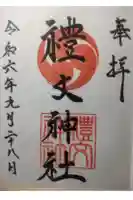 奉拝
禮文神社
令和六年九月二十八日